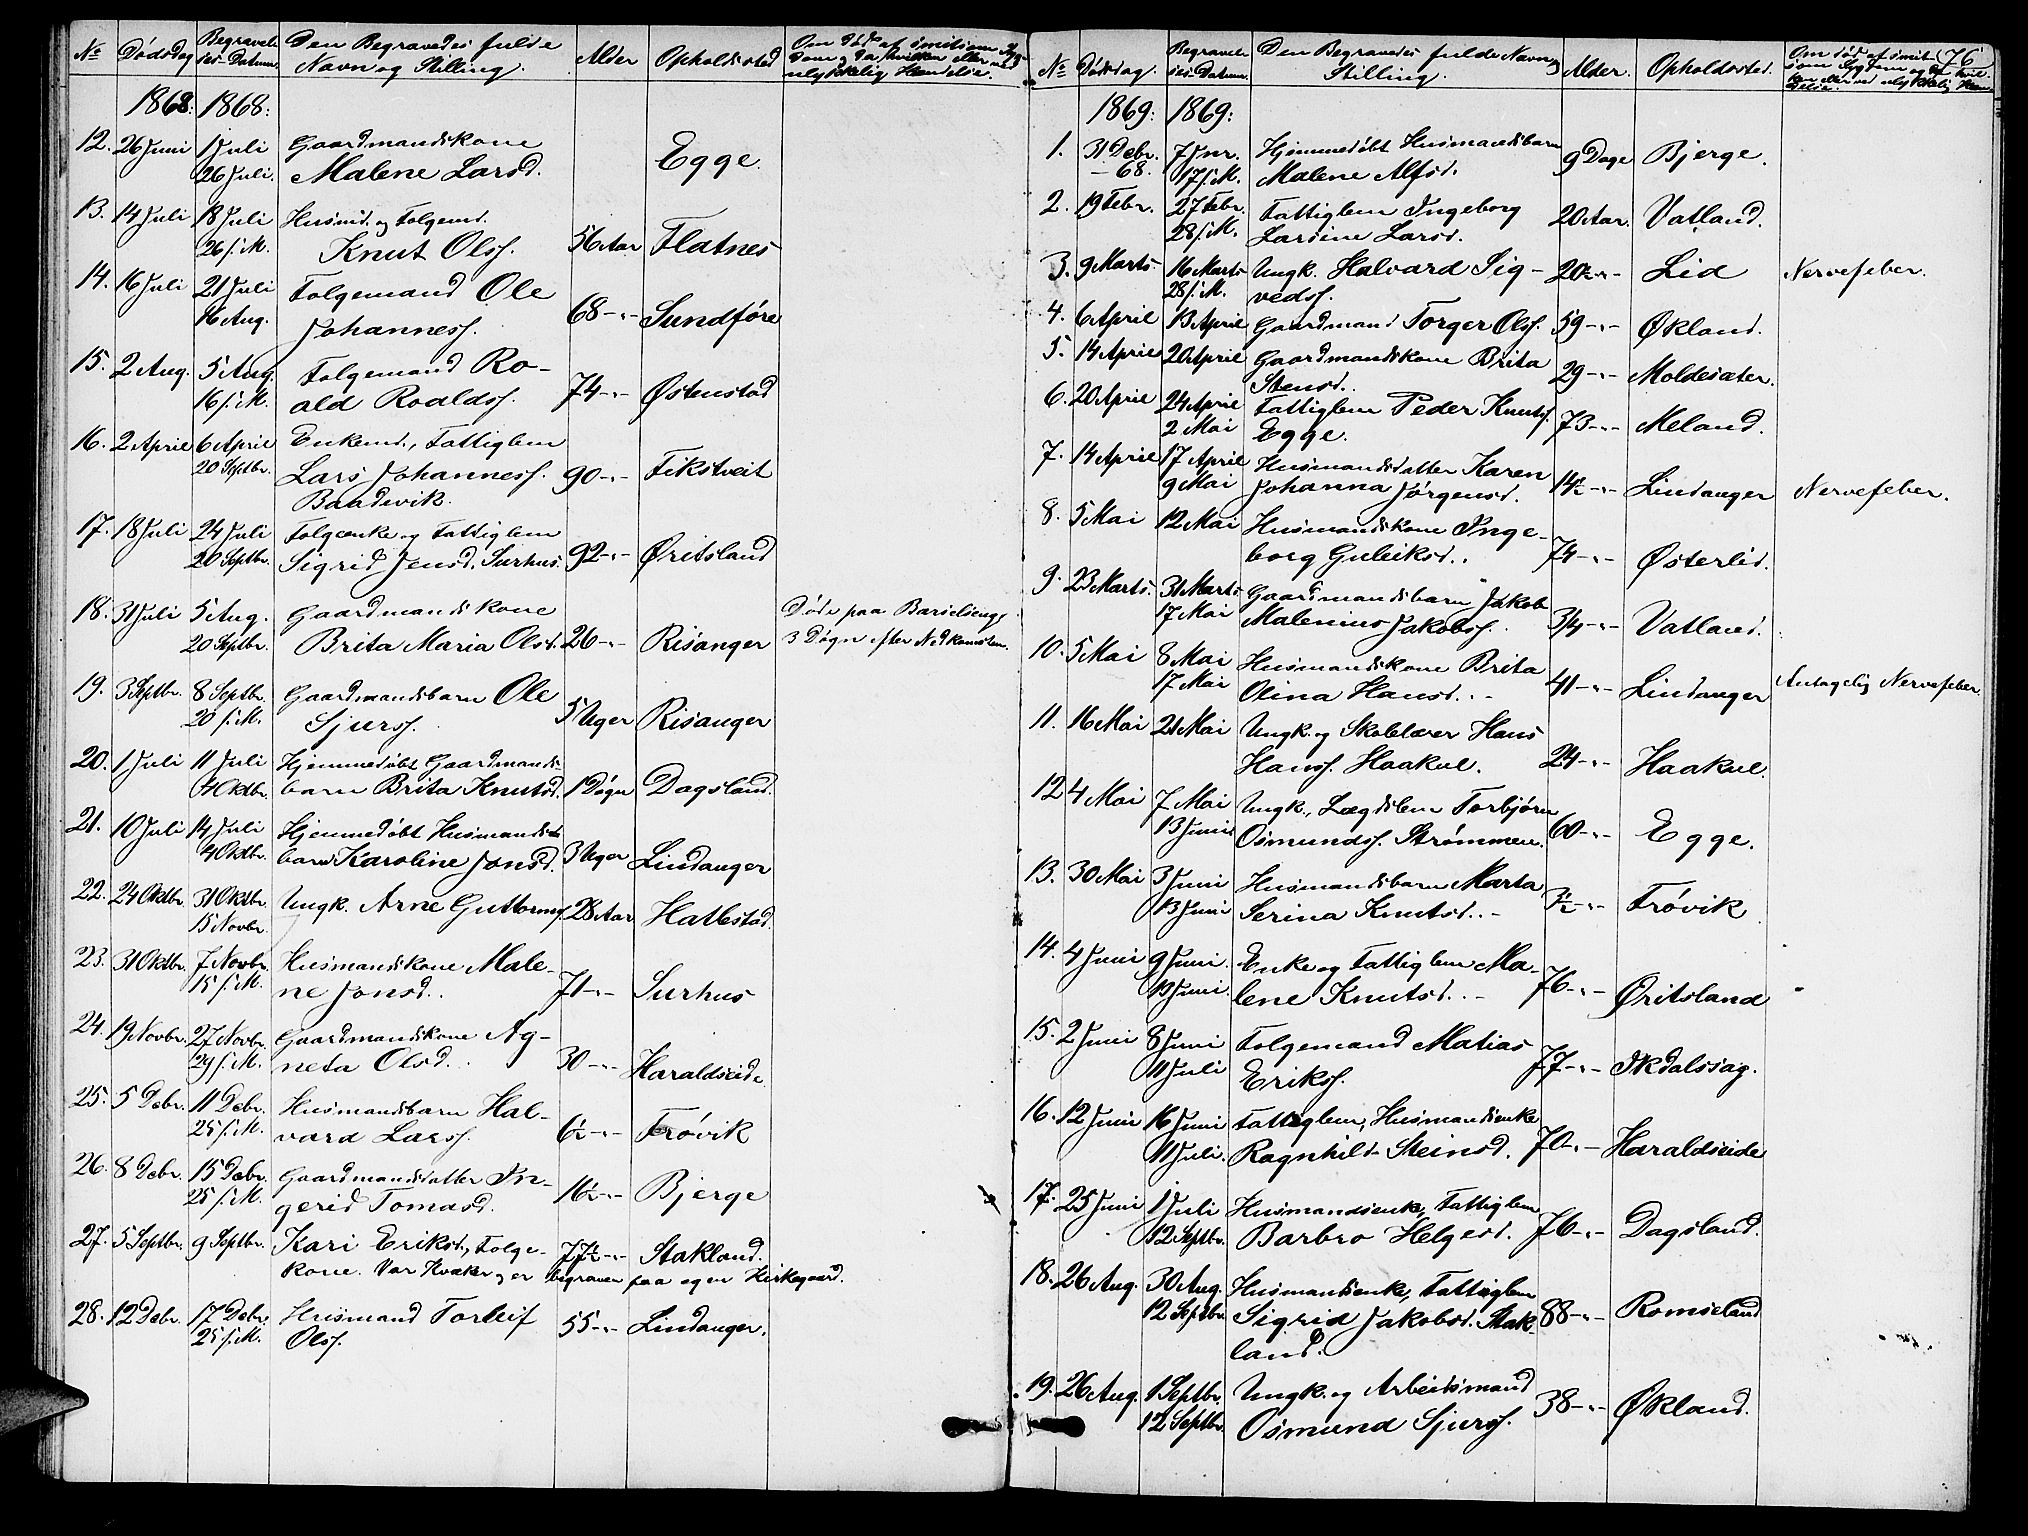 No Dødsdag Begravelsses-Datum. Den Begravedes fulde Navn og Stilling. Alder Opholdssted Om død af smitsom Sygdom og da hvilken eller ved ulykkelig Hændelse.
1868: 1868:
12. 26 Juni 1 Juli Gaardmandskone
26 Juli. Malene Larsd. Egge.
13. 14 Juli 18 Juli Husmd. og Folgemd.
26 s. M. Knut Olss. 56 Aar Flatnes
14. 16 Juli 21 Juli Folgemand Ole
16 Aug. Johanness. 68 -"- Sundføre
15. 2 Aug. 5 Aug. Folgemand Ro-
16 s. M. ald Roalds. 74 -"- Østenstad
16. 2 April 6 April Enkemd., Fattiglem
20 Septbr. Lars Johanness. 90 -"- Fikstveit
Baadevik.
17. 18 Juli 24 Juli Folgeenke og Fattiglem
20 Septbr. Sigrid Jensd. Surhus. 92 -"- Øritsland
18. 31 Juli 5 Aug. Gaardmandskone Døde paa Barselseng,
20 Septbr. Brita Maria Olsd. 26 -"- Risanger 3 Døgn efter Nedkomsten.
19. 3 Septbr. 8 Septbr. Gaardmandsbarn Ole
20 s. M. Sjurss. 5 Uger Risanger
20. 1 Juli 11 Juli Hjemmedøbt Gaardmands-
4 Oktbr. barn Brita Knutsd. 1 Døgn Dagsland.
21. 10 Juli 14 Juli Hjemmedøbt Husmands-
4 Oktbr. barn Karoline Jonsd. 3 Uger Lindanger
22. 24 Oktbr. 31 Oktbr. Ungk. Arne Guttorms. 28 Aar Hatlestad.
15 Novbr.
23. 31 Oktbr. 7 Novbr. Husmandskone Male-
15 s. M. ne Jonsd. 71 -"- Surhus
24. 19 Novbr. 27 Novbr. Gaardmandskone Ag-
29 s. M. neta Olsd. 30 -"- Haraldseide
25. 5 Debr. 11 Debr. Husmandsbarn Hal-
25 s. M. vard Larss. 6½ -"- Frøvik
26. 8 Debr. 15 Debr. Gaardmandsdatter In-
25 s. M. gerid Tomasd. 16½ -"- Bjerge
27. 5 Septbr. 9 Septbr. Kari Eriksd., Folge- 77½ -"- Stakland.
kone. Var Kvæker og er begraven paa egen Kirkegaard.
28. 12 Debr. 17 Debr. Husmand Torleif
25 s. M. Olss. 55 -"- Lindanger.
76
No Dødsdag. Begravelsses-Datum. Den Begravedes fulde Navn og Stilling. Alder. Opholdssted. Om død af smitsom Sygdom og da hvilken eller ved ulykkelig Hændelse.
1869: 1869:
1. 31 Debr. 7 Jnr. Hjemmedøbt Husmandsbarn
- 68. 17 s. M. Malene Alfsd. 9 Dage Bjerge.
2. 19 Febr. 27 Febr. Fattiglem Ingeborg
28 s. M. Larsine Larsd. 20 Aar. Vatland.
3. 9 Marts. 16 Marts Ungk. Halvard Sig- 20½ -"- Lid Nervefeber.
28 s. M. veds.
4. 6 April 13 April Gaardmand Torger Olss. 59 -"- Økland.
5. 14 April 20 April Gaardmandskone Brita
Stensd. 29 -"- Moldesæter.
6. 20 April 24 April Fattiglem Peder Knuts.
2 Mai Egge. 73 -"- Meland.
7. 14 April 17 April Husmandsdatter Karen
9 Mai Johanna Jørgensd. 14½ -"- Lindanger Nervefeber.
8. 5 Mai 12 Mai Husmandskone Inge-
borg Guleiksd. 74 -"- Østerlid.
9. 23 Marts. 31 Marts Gaardmandsbarn Jakob
17 Mai Malenius Jakobs. 3/4 -"- Vatland.
10. 5 Mai 8 Mai Husmandskone Brita
17 Mai Olina Hansd. 41 -"- Lindanger Antagelig Nervefeber.
11. 16 Mai 21 Mai Ungk. og Skolelærer Hans
Hanss. Haakul. 24 -"- Haakul.
12 4 Mai 7 Mai Ungk., Lægdslem Torbjørn
13 Juni Osmundss. Strømmen. 60 -"- Egge.
13. 30 Mai 3 Juni Husmandsbarn Marta
13 Juni Serina Knutsd. ½ -"- Frøvik
14. 4 Juni 9 Juni. Enke og Fattiglem Ma-
13 Juni. lene Knutsd. 76 -"- Øritsland
15. 2 Juni 8 Juni Folgemand Matias
11 Juli Eriks. 77 -"- Ikdalssag.
16. 12 Juni 16 Juni Fattiglem, Husmandsenke
11 Juli. Ragnhild Steinsd. 70 -"- Haraldseide
17. 25 Juni 1 Juli Husmandsenke, Fattiglem
12 Septbr. Barbro Helgesd. 76 -"- Dagsland.
18. 26 Aug. 30 Aug. Husmandsenke, Fattiglem
12 Septbr. Sigrid Jakobsd. Stak- 88 -"- Romseland
land.
19. 26 Aug. 1 Septbr. Ungk. og Arbeidsmand
12 Septbr. Osmund Sjurss. 38 -"- Økland.